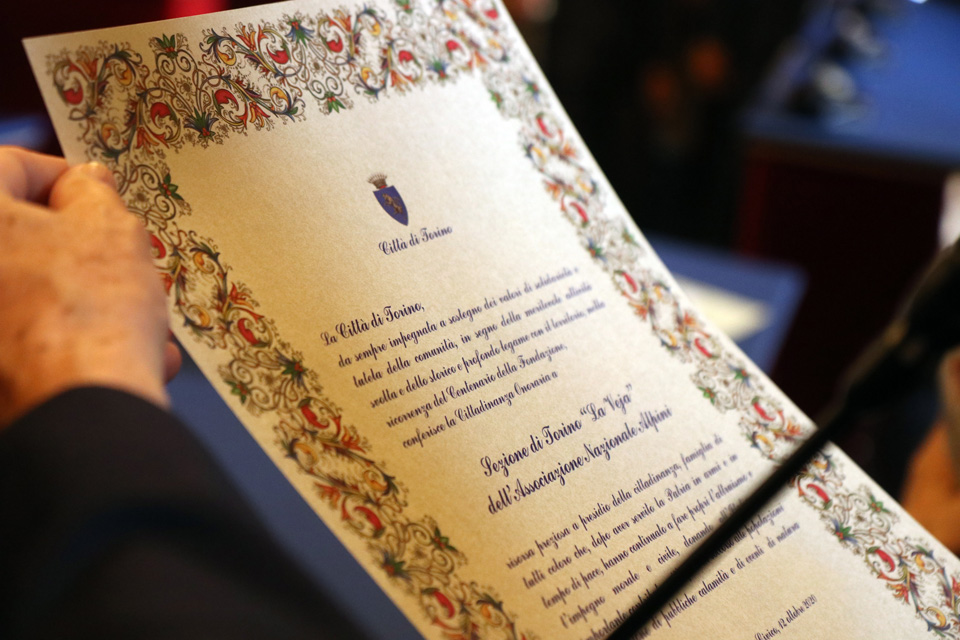 Città di Torino
La Città di Torino,
da sempre impegnata a sostegno dei valori di solidarietà e
tutela della comunità, in segno della meritevole attività
svolta e dello storico e profondo legame con il territorio, nella
ricorrenza del Centenario della Fondazione,
conferisce la Cittadinanza Onoraria a
Sezione di Torino "La Veja"
dell'Associazione Nazionale Alpini
risorsa preziosa a presidio della cittadinanza, famiglia di
tutti coloro che, dopo aver servito la Patria in armi e in
tempo di pace, hanno continuato a fare propri l'altruismo e
l'impegno morale e civile, donando
popolazioni
di pubbliche calamità e di eventi di natura
Civico, 12 ottobre 2020